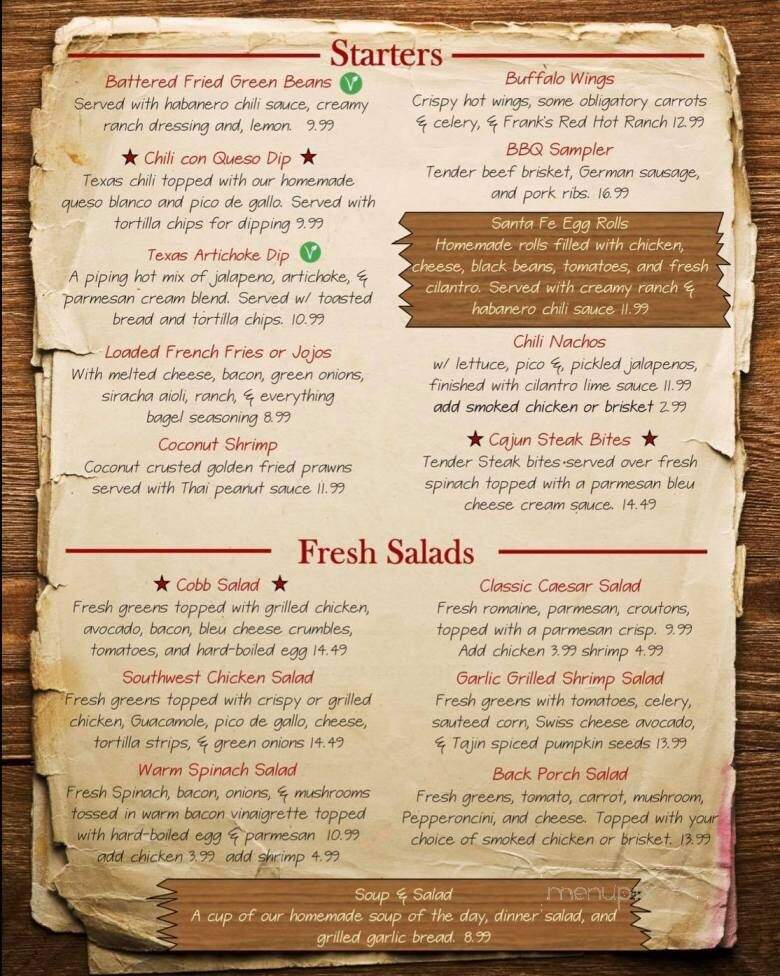 Starters
Battered Fried Green Beans V
Served with habanero chili sauce, creamy
ranch dressing and, lemon. 9.99
Chili con Queso Dip
Texas chili topped with our homemade
queso blanco and pico de gallo. Served with
tortilla chips for dipping 9.99
Texas Artichoke Dip V
A piping hot mix of jalapeno, artichoke, &
parmesan cream blend. Served w/ toasted
bread and tortilla chips. 10.99
Loaded French Fries or Jojos
With melted cheese, bacon, green onions,
siracha aioli, ranch, & everything
bagel seasoning 8.99
Coconut Shrimp
Coconut crusted golden fried prawns
served with Thai peanut sauce 11.99
Buffalo Wings
Crispy hot wings, some obligatory carrots
& celery, & Frank's Red Hot Ranch 12.99
BBQ Sampler
Tender beef brisket, German sausage,
and pork ribs. 16.99
Santa Fe Egg Rolls
Homemade rolls filled with chicken,
cheese, black beans, tomatoes, and fresh
cilantro. Served with creamy ranch &
habanero chili sauce 11.99
Chili Nachos
w/ lettuce, pico &, pickled jalapenos,
finished with cilantro lime sauce 11.99
add smoked chicken or brisket 2.99
Cajun Steak Bites
Tender Steak bites served over fresh
spinach topped with a parmesan bleu
cheese cream sauce. 14.49
Fresh Salads
Cobb Salad
Fresh greens topped with grilled chicken,
avocado, bacon, bleu cheese crumbles,
tomatoes, and hard-boiled egg 14.49
Southwest Chicken Salad
Fresh greens topped with crispy or grilled
chicken, Guacamole, pico de gallo, cheese,
tortilla strips, & green onions 14.49
Warm Spinach Salad
Fresh Spinach, bacon, onions, & mushrooms
tossed in warm bacon vinaigrette topped
with hard-boiled egg & parmesan 10.99
add chicken 3.99 add shrimp 4.99
Classic Caesar Salad
Fresh romaine, parmesan, croutons,
topped with a parmesan crisp. 9.99
Add chicken 3.99 shrimp 4.99
Garlic Grilled Shrimp Salad
Fresh greens with tomatoes, celery,
sauteed corn, Swiss cheese avocado,
& Tajin spiced pumpkin seeds 13.99
Back Porch Salad
Fresh greens, tomato, carrot, mushroom,
Pepperoncini, and cheese. Topped with your
choice of smoked chicken or brisket. 13.99
Soup & Salad
A cup of our homemade soup of the day, dinner salad, and
grilled garlic bread. 8.99